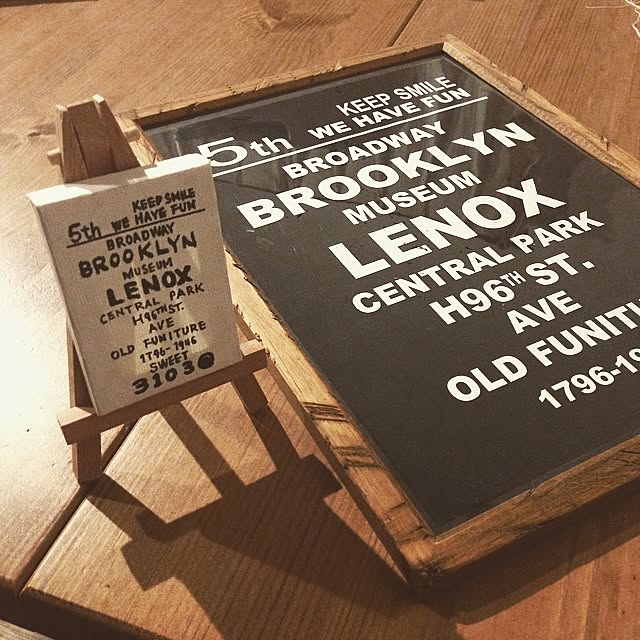 KEEP SMILE
5th WE HAVE FUN
BROADWAY
BROOKLYN
MUSEUM
LENOX
CENTRAL PARK
H96TH ST.
AVE
OLD FUNITURE
1796-1946
SWEET
3103@
KEEP SMILE
5th WE HAVE FUN
BROADWAY
BROOKLYN
MUSEUM
LENOX
CENTRAL PARK
H96TH ST.
AVE
OLD FUNIT
1796-19